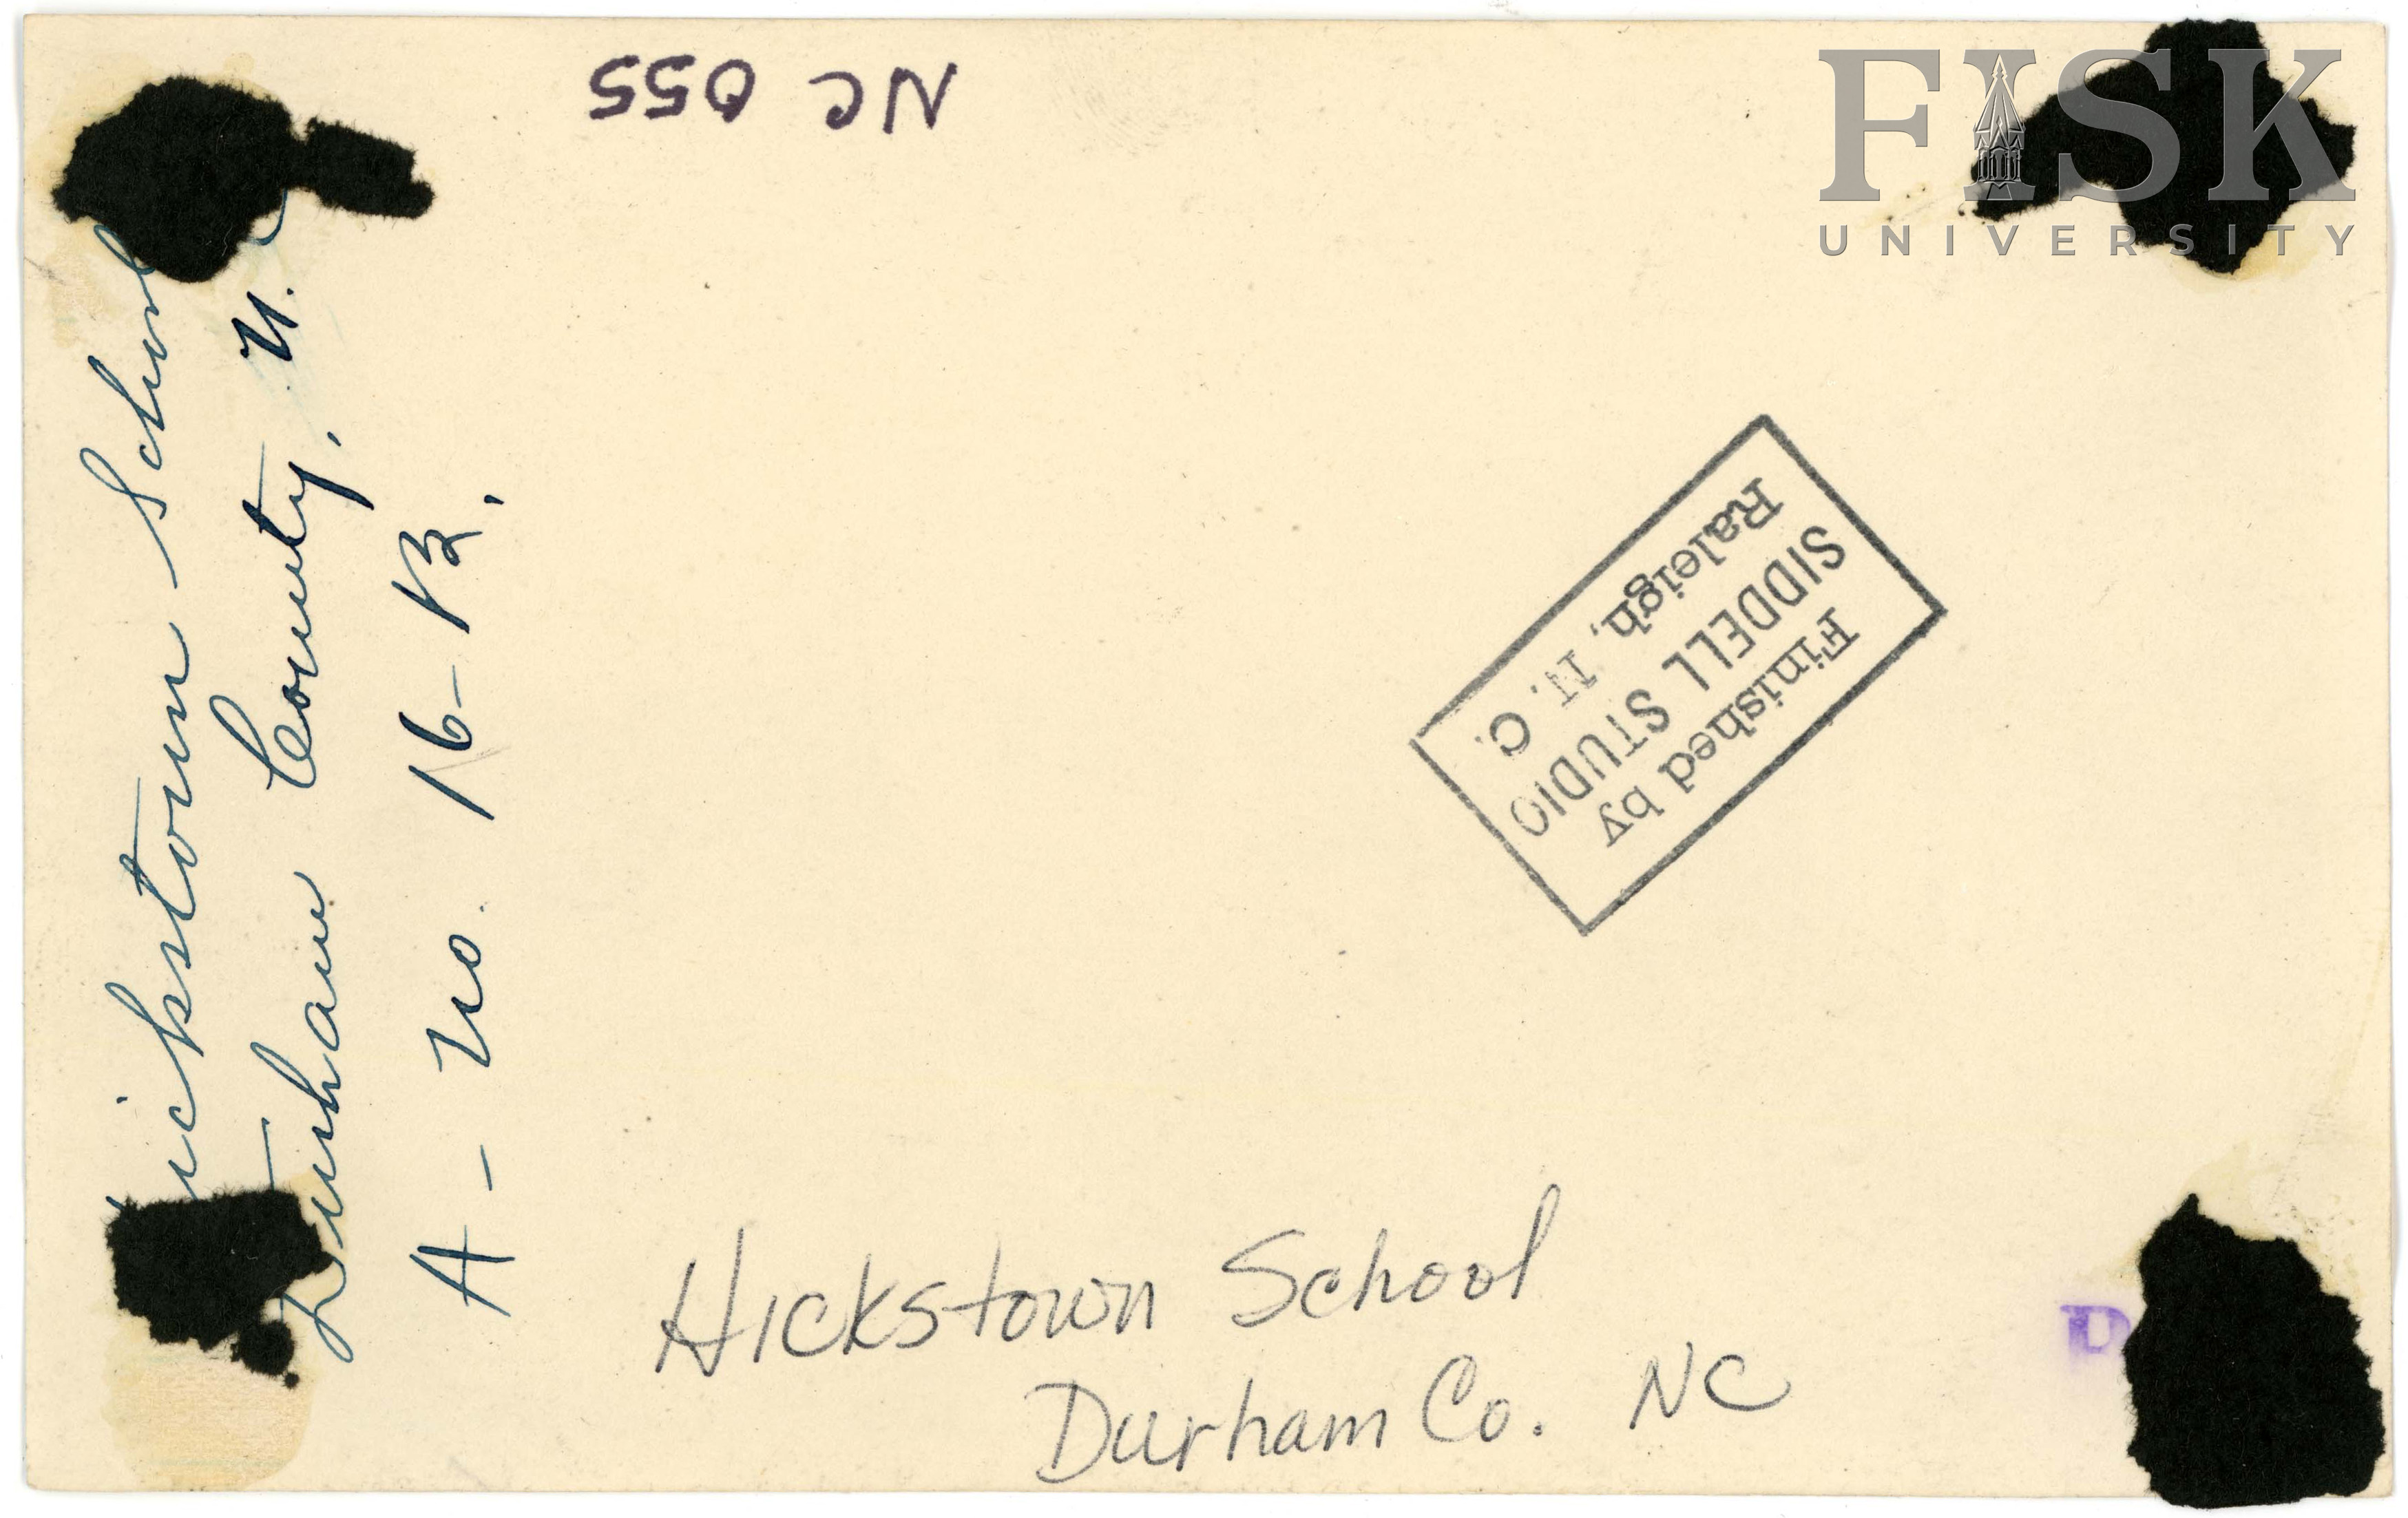 NC 055
FISK
UNIVERSITY
ickstown School
Durham County, N.
A - No. 16-B.
Finished by
SIDDELL STUDIO
Raleigh, N. C.
Hickstown School
Durham Co. NC